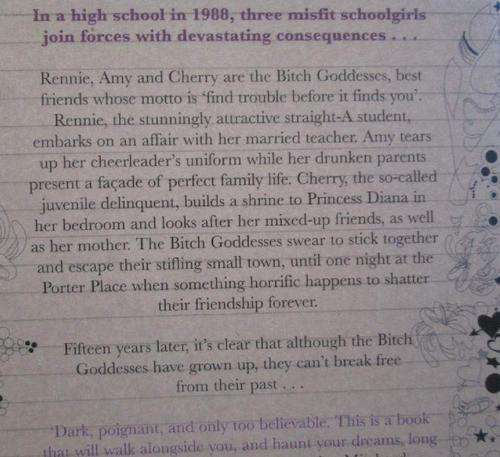 In a high school in 1988, three misfit schoolgirls
join forces with devastating consequences . . .
Rennie, Amy and Cherry are the Bitch Goddesses, best
friends whose motto is ‘find trouble before it finds you’.
Rennie, the stunningly attractive straight-A student,
embarks on an affair with her married teacher. Amy tears
up her cheerleader’s uniform while her drunken parents
present a façade of perfect family life. Cherry, the so-called
juvenile delinquent, builds a shrine to Princess Diana in
her bedroom and looks after her mixed-up friends, as well
as her mother. The Bitch Goddesses swear to stick together
and escape their stifling small town, until one night at the
Porter Place when something horrific happens to shatter
their friendship forever.
Fifteen years later, it’s clear that although the Bitch
Goddesses have grown up, they can’t break free
from their past . . .
‘Dark, poignant, and only too believable. This is a book
that will walk alongside you, and haunt your dreams, long